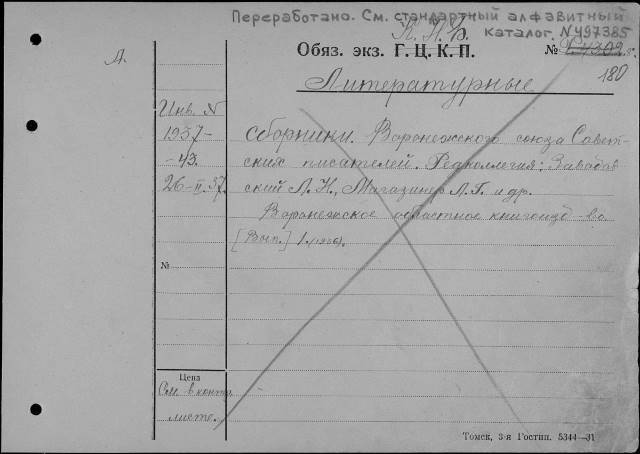 Переработано. См. стандартный алфавитный
каталог. N497385
К. Н. Б.
Обяз. экз. Г. Ц. К. П.
№
180
А.
Литературные
Инв. N
1937-
-43.
26-II.37.
сборники. Воронежского союза Совет-
ских писателей. Редколлегия: Завадов
ский Л. Н., Магазинер Л. Г. и др.
Воронежское областное книгоизд-во
[Вып.] 1. (1936).
№
Цена
См. в контр.
листе.
Томск, 3-я Гостип. 5344—31